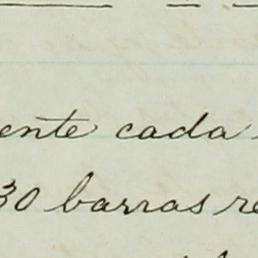 ente cada
30 barras re